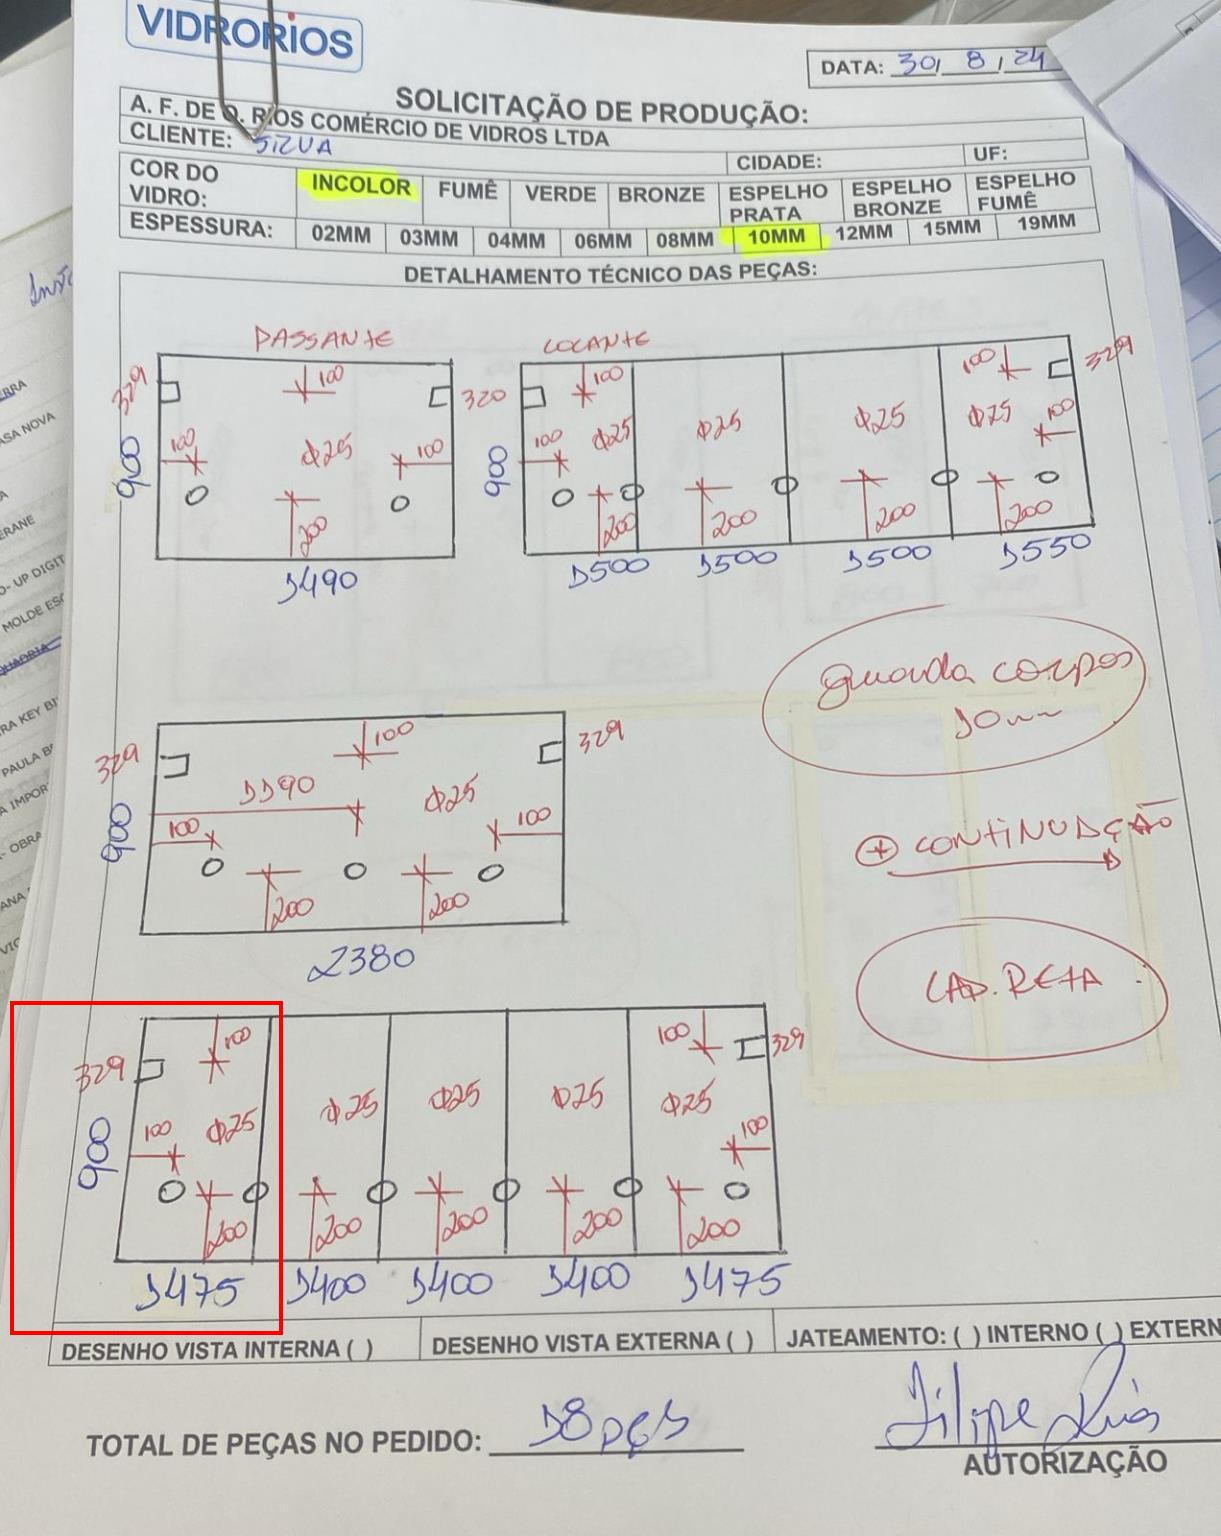 VIDRORIOS
DATA: 30/ 8 / 24
SOLICITAÇÃO DE PRODUÇÃO:
A. F. DE O. RIOS COMÉRCIO DE VIDROS LTDA
CLIENTE: SILVA
CIDADE: UF:
COR DO VIDRO: INCOLOR FUMÊ VERDE BRONZE ESPELHO PRATA ESPELHO BRONZE ESPELHO FUMÊ
ESPESSURA: 02MM 03MM 04MM 06MM 08MM 10MM 12MM 15MM 19MM
DETALHAMENTO TÉCNICO DAS PEÇAS:
PASSANTE
329 100 320
100 Φ25 100
900
200
1490
COLANTE
100 100 329
100 Φ25 Φ25 Φ25 Φ25 100
900
200 200 200 200
1500 1500 1500 1550
guarda corpos
10mm
329 100 329
1190 Φ25
100 100
900
200 200
2380
+ CONTINUAÇÃO
LAP. RETA
329 100 100 329
100 Φ25 Φ25 Φ25 Φ25 Φ25 100
900
200 200 200 200 200
1475 1400 1400 1400 1475
DESENHO VISTA INTERNA ( ) DESENHO VISTA EXTERNA ( ) JATEAMENTO: ( ) INTERNO ( ) EXTERN
TOTAL DE PEÇAS NO PEDIDO: 18 pçs
Filipe Rios
AUTORIZAÇÃO
ERRA
ASA NOVA
ERANE
O- UP DIGIT
MOLDE ES
QUADRIA
RA KEY
PAULA
A IMPOR
- OBRA
ANA